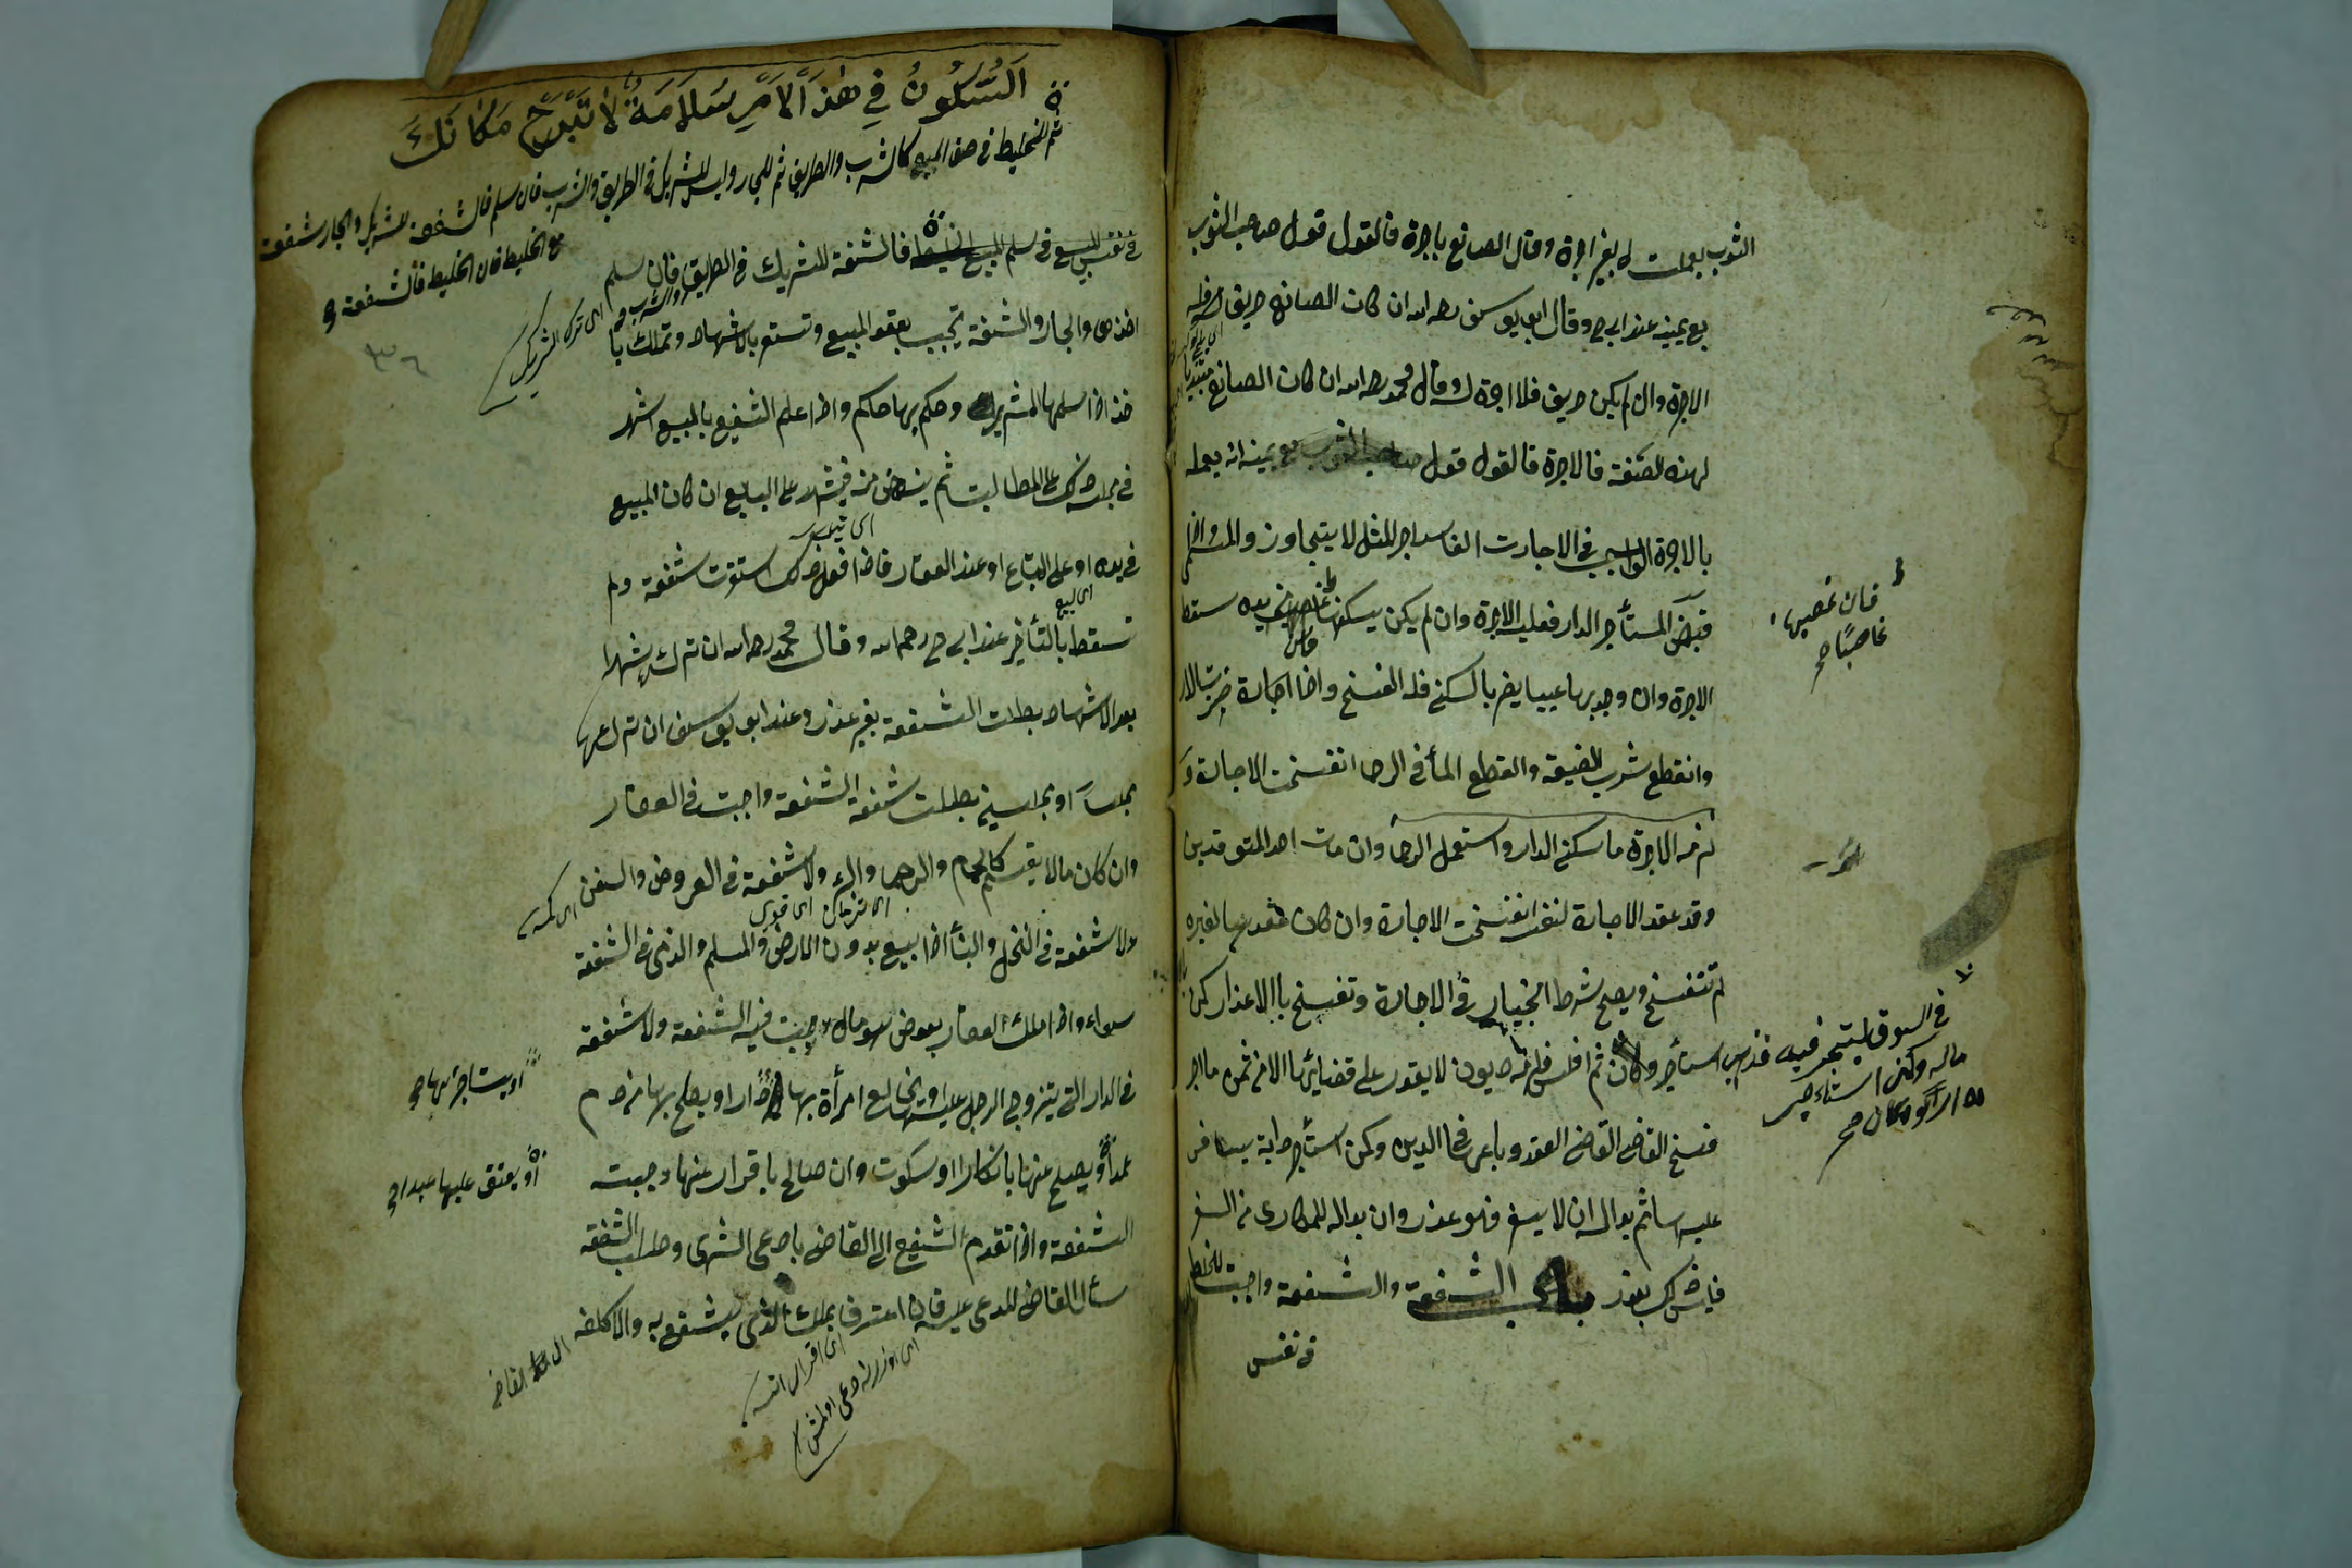 الثوب بعملت له بغير اجرة وقال الصانع باجرة فالقول قول صاحب الثوب
مع يمينه عند ابى ح وقال ابو يوسف رحمه الله ان كان الصانع حريف له فله
الاجرة وان لم يكن حريف فلا اجرة له وقال محمد رحمه الله ان كان الصانع مبتديا
لهذه الصنعة فالاجرة فالقول قول صاحب الثوب مع يمينه انه يعمله
بالاجرة الواجب فى الاجارت الفاسد اجر المثل لا يتجاوز والمسمى واذا
قبض المستأجر الدار فعليه الاجرة وان لم يكن يسكنها غاصب من يده سقط
فان غصبها
غاصبًا صح
الاجرة وان وجد بها عيبا يضر بالسكنى فله الفسخ واذا اجارة خربت الدار
وانقطع شرب الضيعة والقطع المأ فى الرحا انفسخت الاجارة و
لزمه الاجرة ما سكنى الدار واستعمل الرحا وان مات احد المتعوقدين
وقد عقد الاجارة لنفسه انفسخت الاجارة وان كان عقدها لغيره
لم تنفسخ ويصح شرط الخيار فى الاجارة وتفسخ باالاعذار كمن
فى السوق ليتجر فيه فذهب
ماله وكمن استاءجر
استأجر وكان ثم افلس فلزمه ديون لا يقدر على قضائها الا من ثمن ما اجر
فسخ القاضى القاضى العقد وباعها فى الدين وكمن استأجر دابة يسافر
عليها ثم بدا له ان لا يسفر فهو عذر وان بدا له للمكارى من السفر
فليس ذلك بعذر باب الشفعة والشفعة واجبت للخليط
فى نفس
اَلسُّكُونُ فِي هٰذَا الْاَمْرِ سَلَامَةٌ لَا تَبْرَحْ مَكَانَكَ
ثم للخليط فى حق المبيع كالشرب والطريق ثم للجار وليس للشريك فى الطريق والشرب فان سلم فالشفعة للشريك والجار شفعة
مع الخليط فان الخليط فالشفعة
فى نفس المبيع فى سلم المبيع الخليط فالشفعة للشريك فى الطريق فان سلم
والشرب
اى ترك الشريك
اخذها والجار والشفعة تجب بعقد المبيع وتستقر بالاشهاد وتملك با
٣٦
خذ اذا سلمها المشترى وحكم بها حاكم واذا علم الشفيع بالمبيع اشهد
فى مجلسه ذلك على المطالبت ثم ينهض منه فيشهد على البايع ان كان المبيع
فى يده او على المبتاع او عند العقار فاذا فعل ذلك استقرت شفعته ولم
تسقط بالتأخير عند ابى ح رحمه الله وقال محمد رحمه الله ان تركه شهرا
بعد الاشهاد بطلت الشفعة بغير عذر وعند ابو يوسف ان تركها
مجلسا او مجلسين بطلت شفعته الشفعة واجبت فى العقار
وان كان مما لا يقسم كالحمام والرحا والبئر ولا شفعة فى العروض والسفن
ولا شفعة فى النخل والبنأ اذا بيع بدون الارض والمسلم والذمى فى الشفعة
سواء واذا ملك العقار بعوض هو مال وجبت فيه الشفعة ولا شفعة
فى الدار التى يتزوج الرجل عليها او يخالع امرأة بها او يستأجر بها دارا او يصلح بها من دم
او يستاجر بها
عمد او يصلح عنها بانكار او سكوت وان صالح باقرار عنها وجبت
او يعتق عليها عبدا
الشفعة واذا تقدم الشفيع الى القاضى باادعى الشرى وطلب الشفعة
سأل القاضى للمدعى عليه فان اعترف بملك الذى يشفع به والا كلفه
اى القاضى
اى اقرار